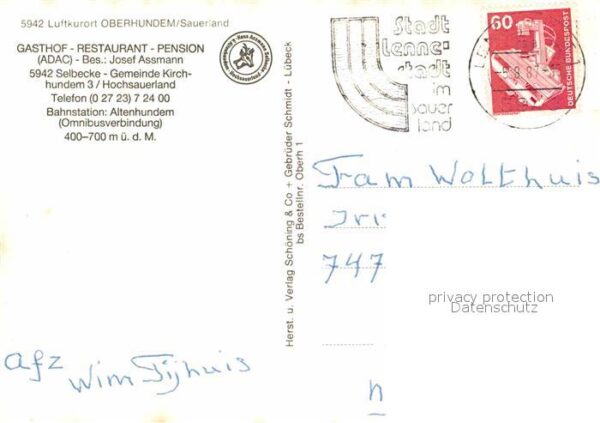 5942 Luftkurort OBERHUNDEM/Sauerland
GASTHOF - RESTAURANT - PENSION
(ADAC) - Bes.: Josef Assmann
5942 Selbecke - Gemeinde Kirch-
hundem 3 / Hochsauerland
Telefon (0 27 23) 7 24 00
Bahnstation: Altenhundem
(Omnibusverbindung)
400–700 m ü. d. M.
Afz
Wim Tijhuis
Herst. u. Verlag Schöning & Co + Gebrüder Schmidt - Lübeck
bs Bestellnr. Oberh 1
Stadt
Lenne-
stadt
im
Sauer
land
60
DEUTSCHE BUNDESPOST
Fam Wolthuis
747
privacy protection
Datenschutz
n